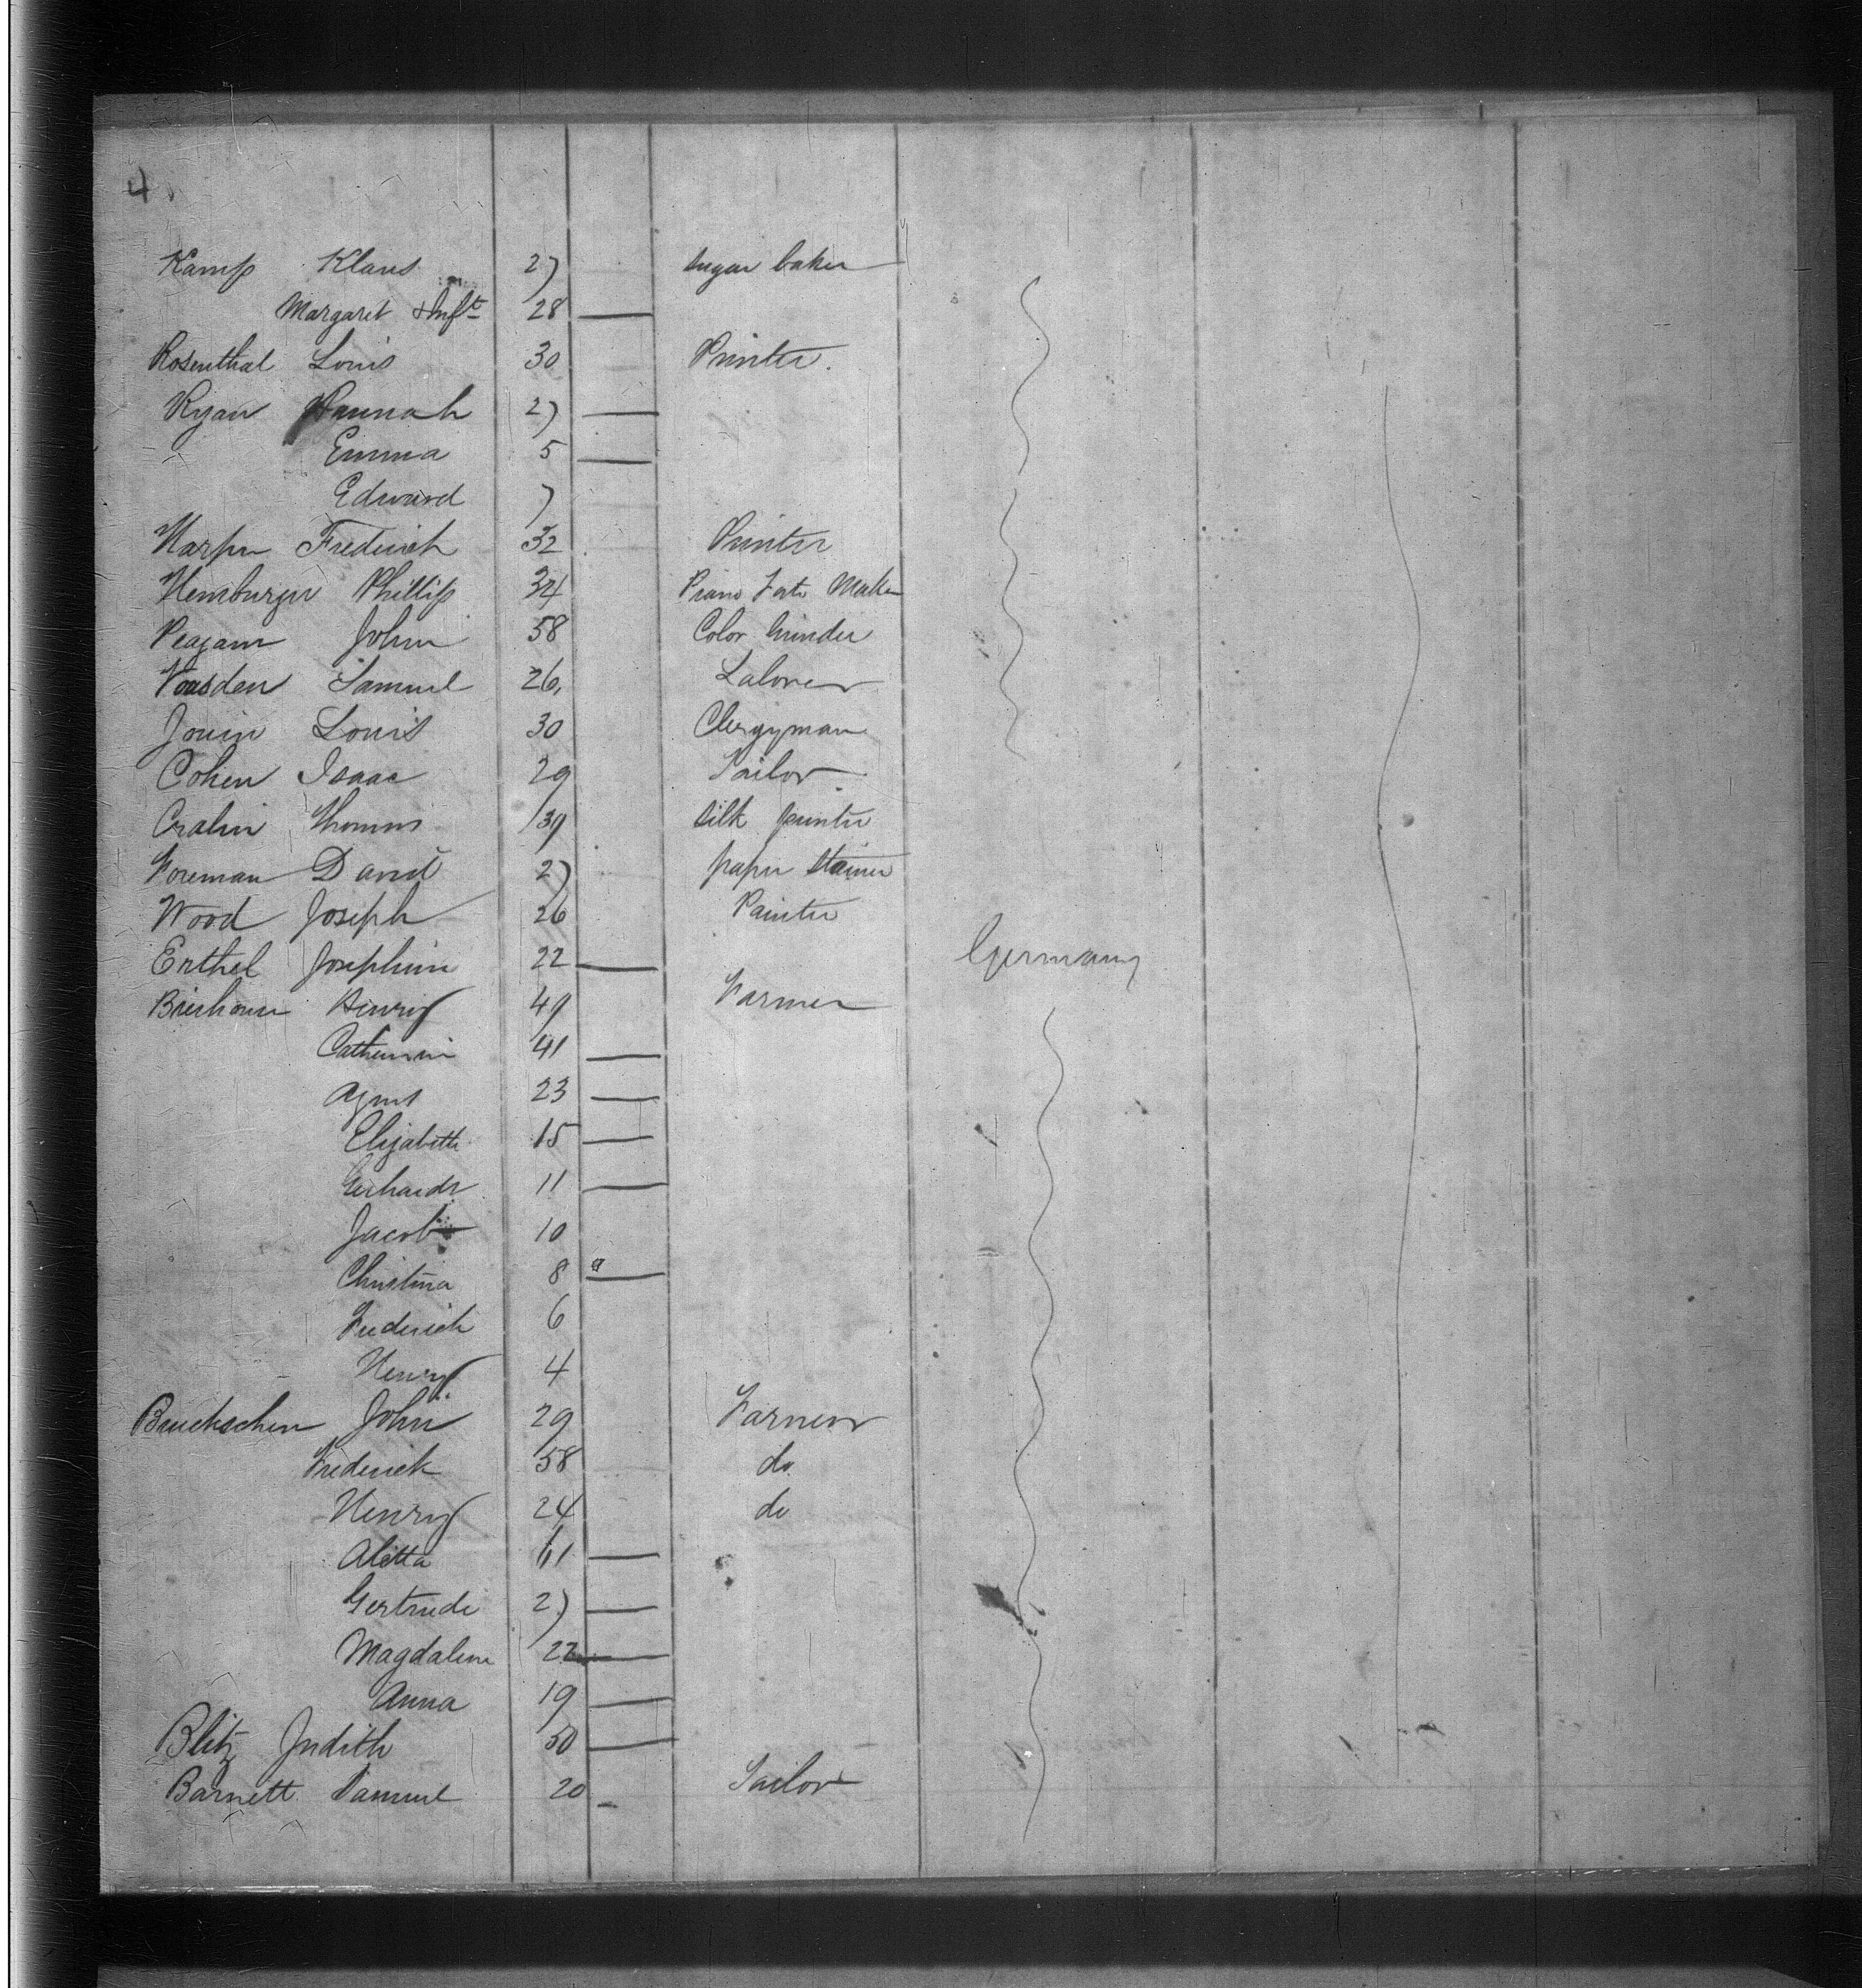 4.
Kamp Klaus 27 Sugar baker
Margaret & Inft 28 —
Rosenthal Louis 30 Printer.
Ryan Hannah 27 —
Emma 5 —
Edward 7
Harper Frederich 32 Printer
Hemburger Phillip 34 Piano Forte Maker
Peagam John 58 Color Grinder
Vousden Samuel 26 Laborer
Jouin Louis 30 Clergyman
Cohen Isaac 29 Tailor
Cralin Thomas 39 Silk printer
Foreman David 27 paper stainer
Wood Joseph 26 Painter
Erthel Josephine 22 — Germany
Henry 49 Farmer
Catherine 41 —
Agnes 23 —
Elizabeth 15 —
Gerhardt 11 —
Jacob 10
Christina 8 —
Frederick 6
Henry 4
John 29 Farmer
Frederick 58 do
Henry 24 do
Aletta 61 —
Gertrude 27 —
Magdalene 22 —
Anna 19 —
Blitz Judith 50 —
Barnett Samuel 20 – Tailor